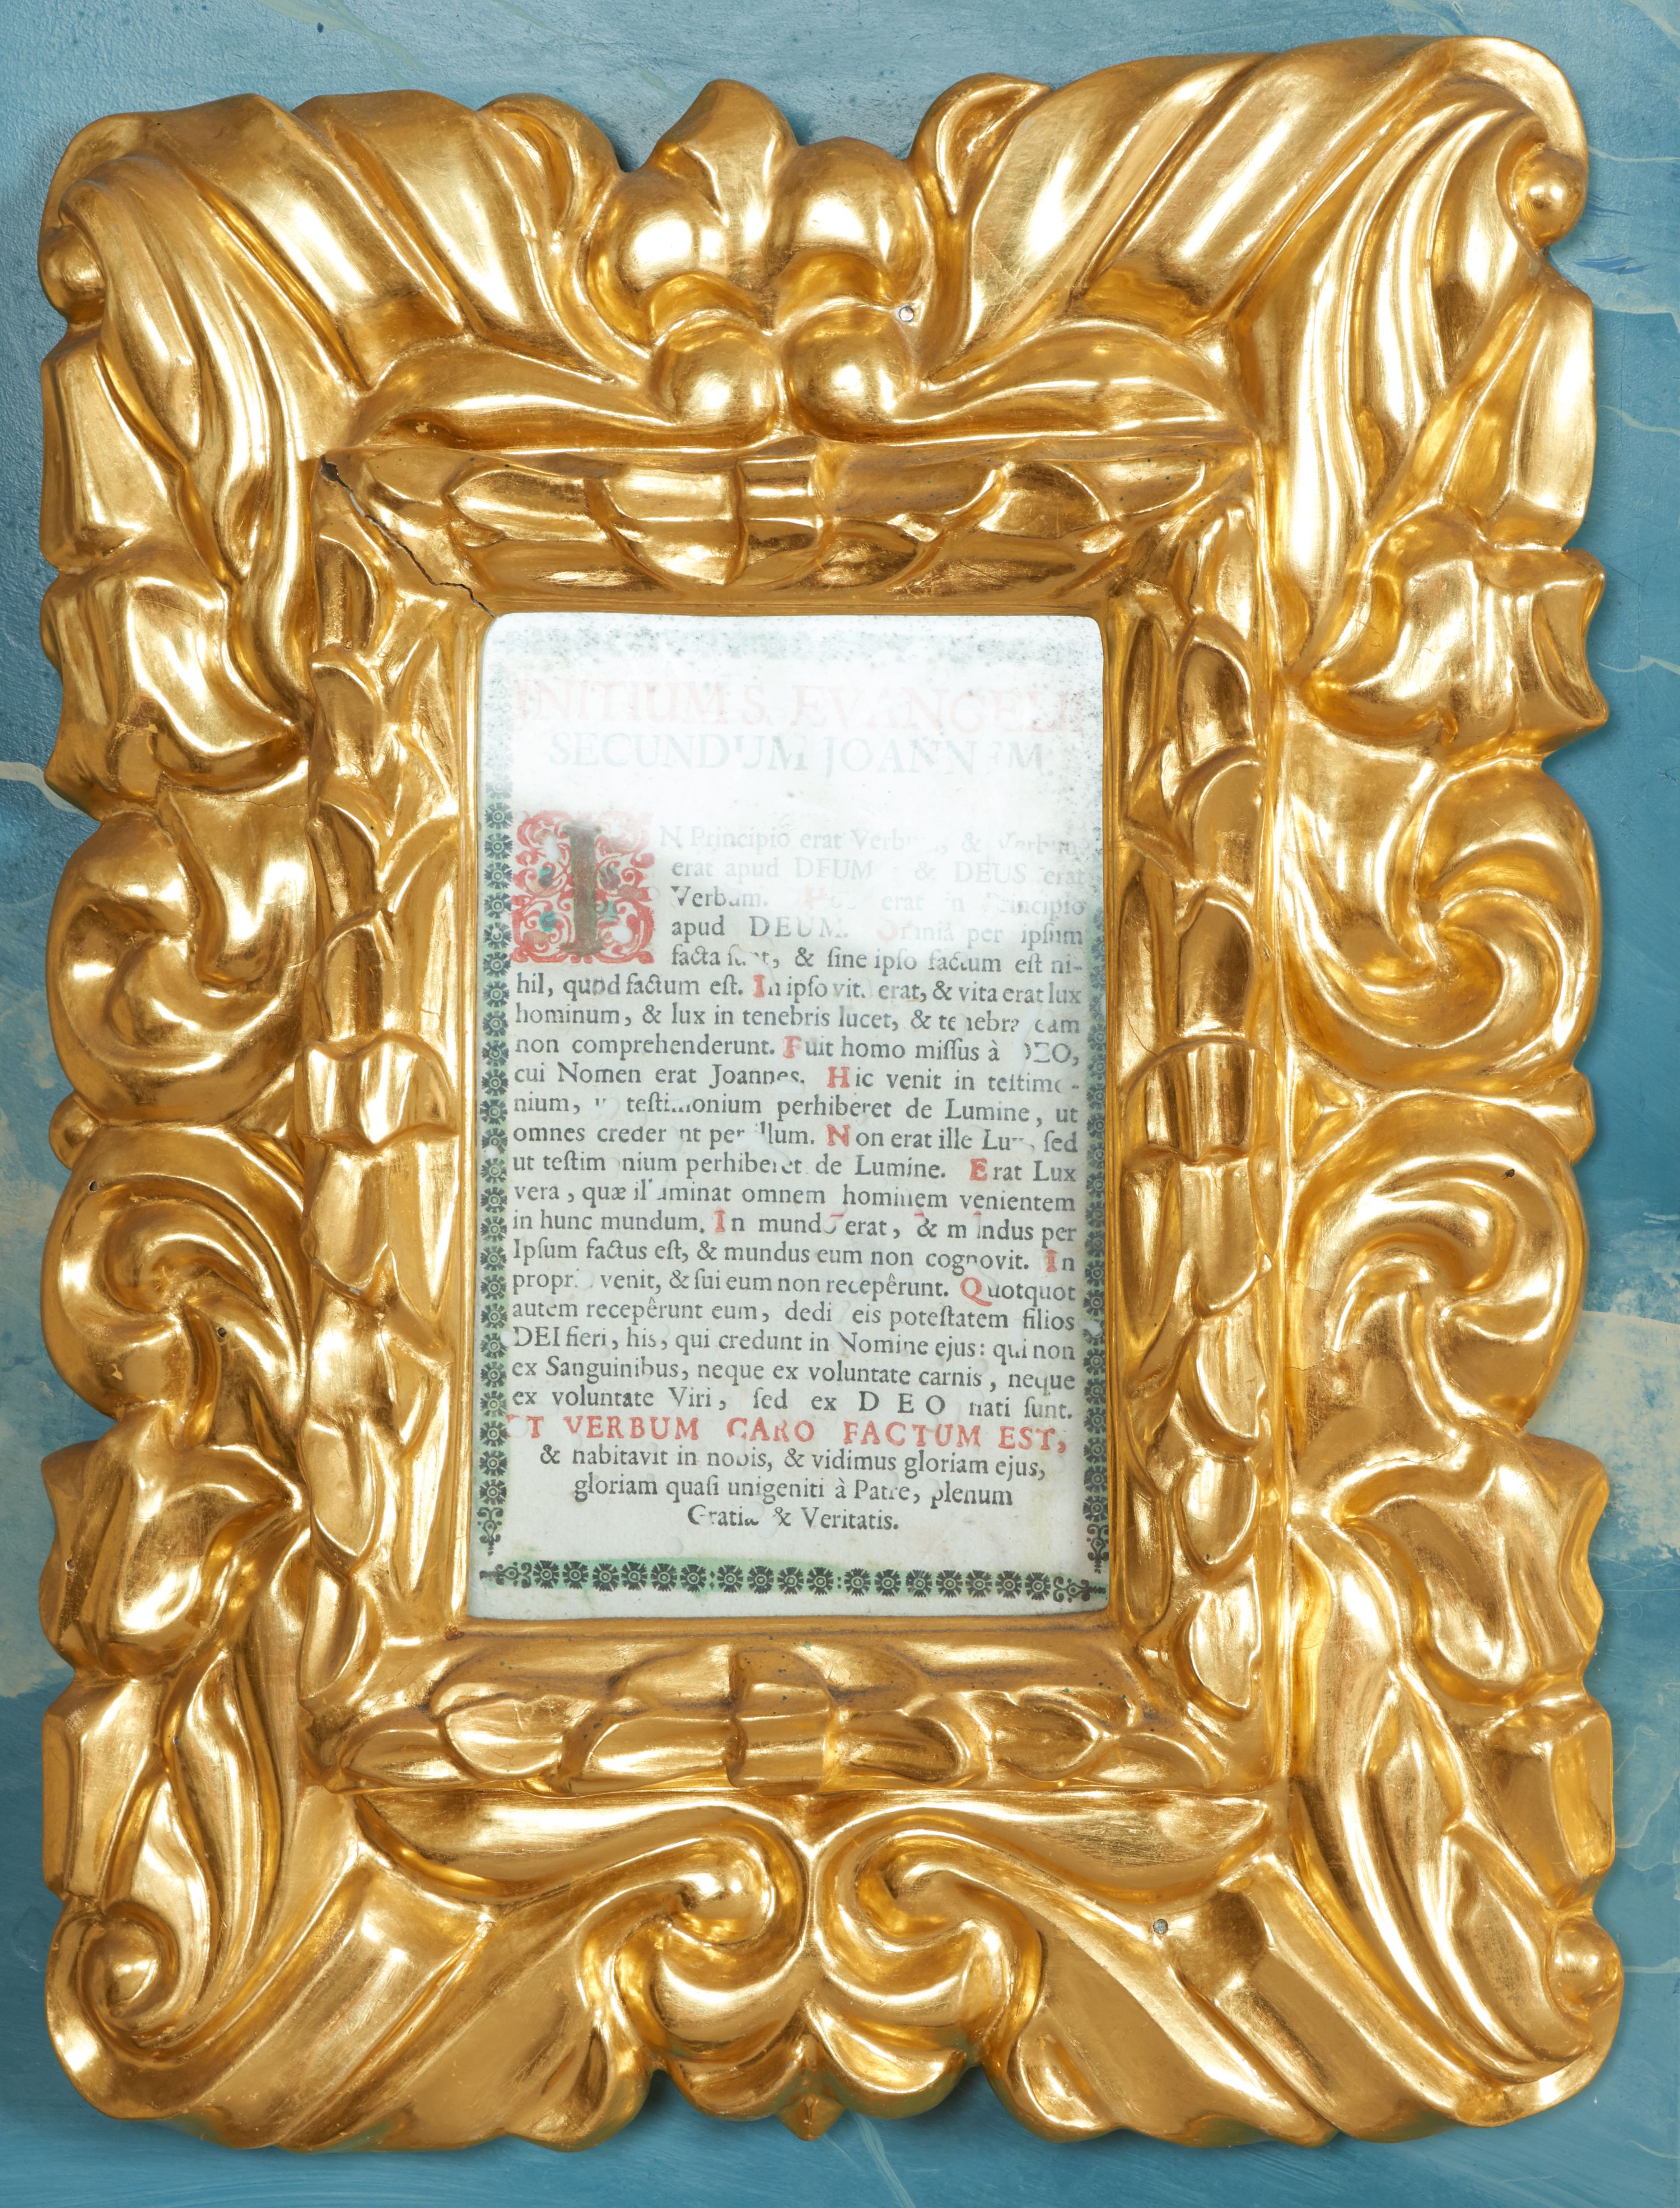 INITIUM S. EVANGELII
SECUNDUM JOANNEM.
IN Principiô erat Verbum, & Verbum
erat apud DEUM, & DEUS erat
Verbum. Hoc erat in Principio
apud DEUM. Omnia per ipſum
facta ſunt, & ſine ipſo factum eſt ni-
hil, quod factum eſt. In ipſo vita erat, & vita erat lux
hominum, & lux in tenebris lucet, & tenebræ eam
non comprehenderunt. Fuit homo miſſus à DEO,
cui Nomen erat Joannes. Hic venit in teſtimo-
nium, ut teſtimonium perhiberet de Lumine, ut
omnes crederent per illum. Non erat ille Lux, ſed
ut teſtimonium perhiberet de Lumine. Erat Lux
vera, quæ illuminat omnem hominem venientem
in hunc mundum. In mundo erat, & mundus per
Ipſum factus eſt, & mundus eum non cognovit. In
propria venit, & ſui eum non recepêrunt. Quotquot
autem recepêrunt eum, dedit eis poteſtatem filios
DEI fieri, his, qui credunt in Nomine ejus: qui non
ex Sanguinibus, neque ex voluntate carnis, neque
ex voluntate Viri, ſed ex DEO nati ſunt.
ET VERBUM CARO FACTUM EST,
& habitavit in nobis, & vidimus gloriam ejus,
gloriam quaſi unigeniti à Patre, plenum
Gratiæ & Veritatis.